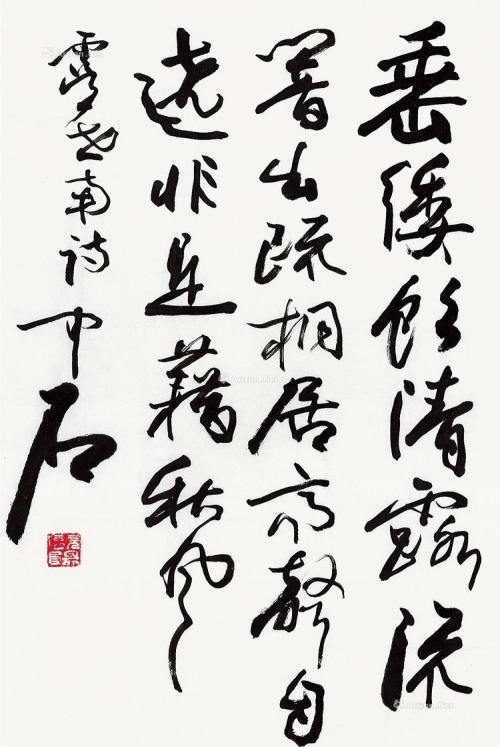 垂緌飲清露流
響出疏桐居高聲自
遠非是藉秋風
虞世南詩 中石